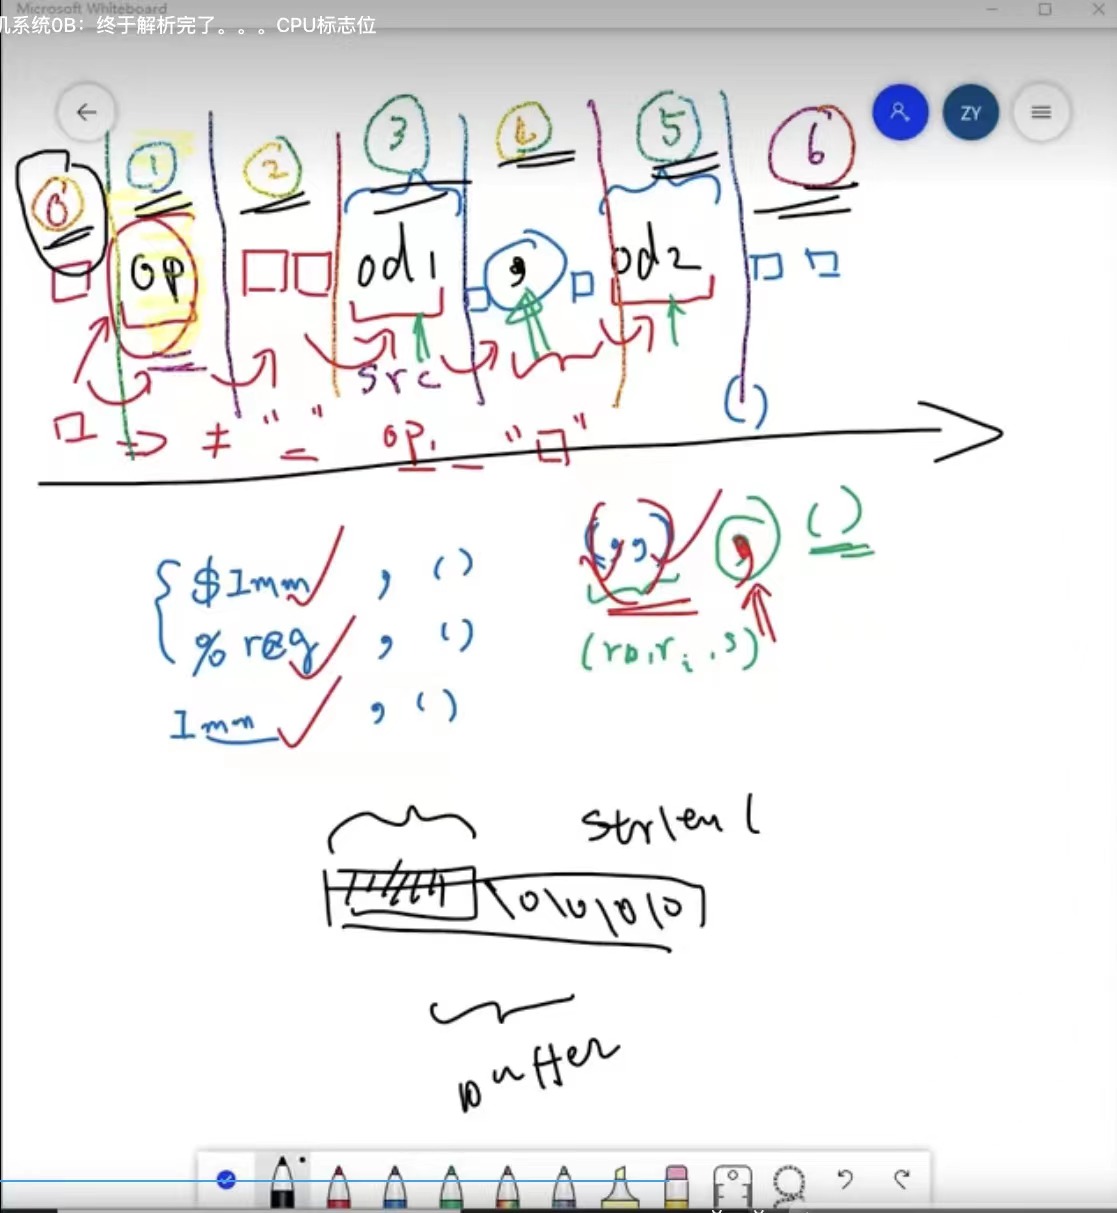 Microsoft Whiteboard
机系统0B：终于解析完了。。。CPU标志位
ZY
0 1 2 3 4 5 6
op od1 , od2
src
()
⇒ ≠ "_" op, _ "□"
$Imm , ()
% reg , ()
Imm , ()
(,,) , ()
(rb,ri,s)
strlen(
\0\0\0\0
buffer